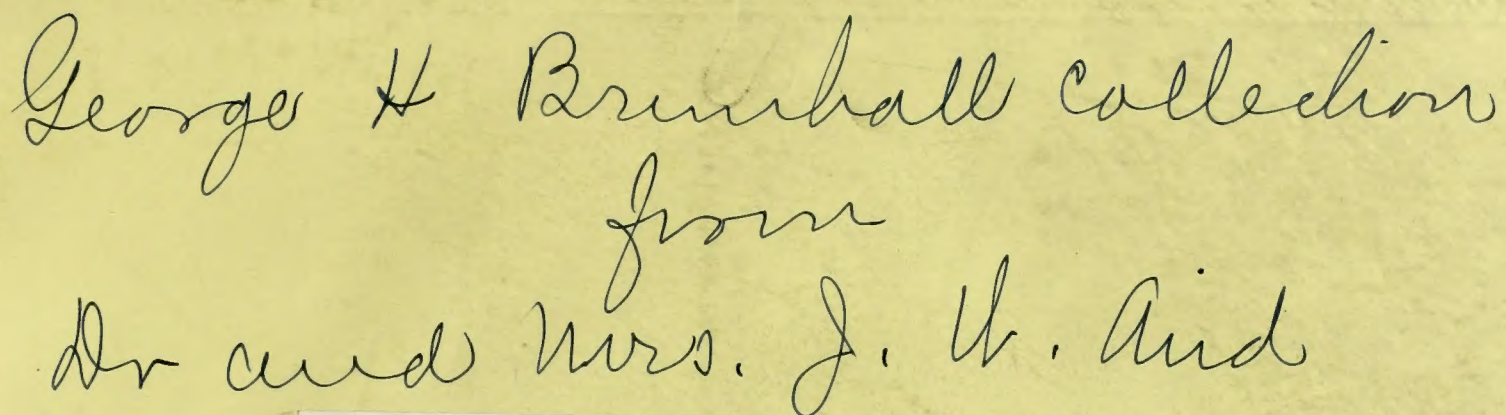 George H Brimhall collection
from
Dr and Mrs. J. W. Aird